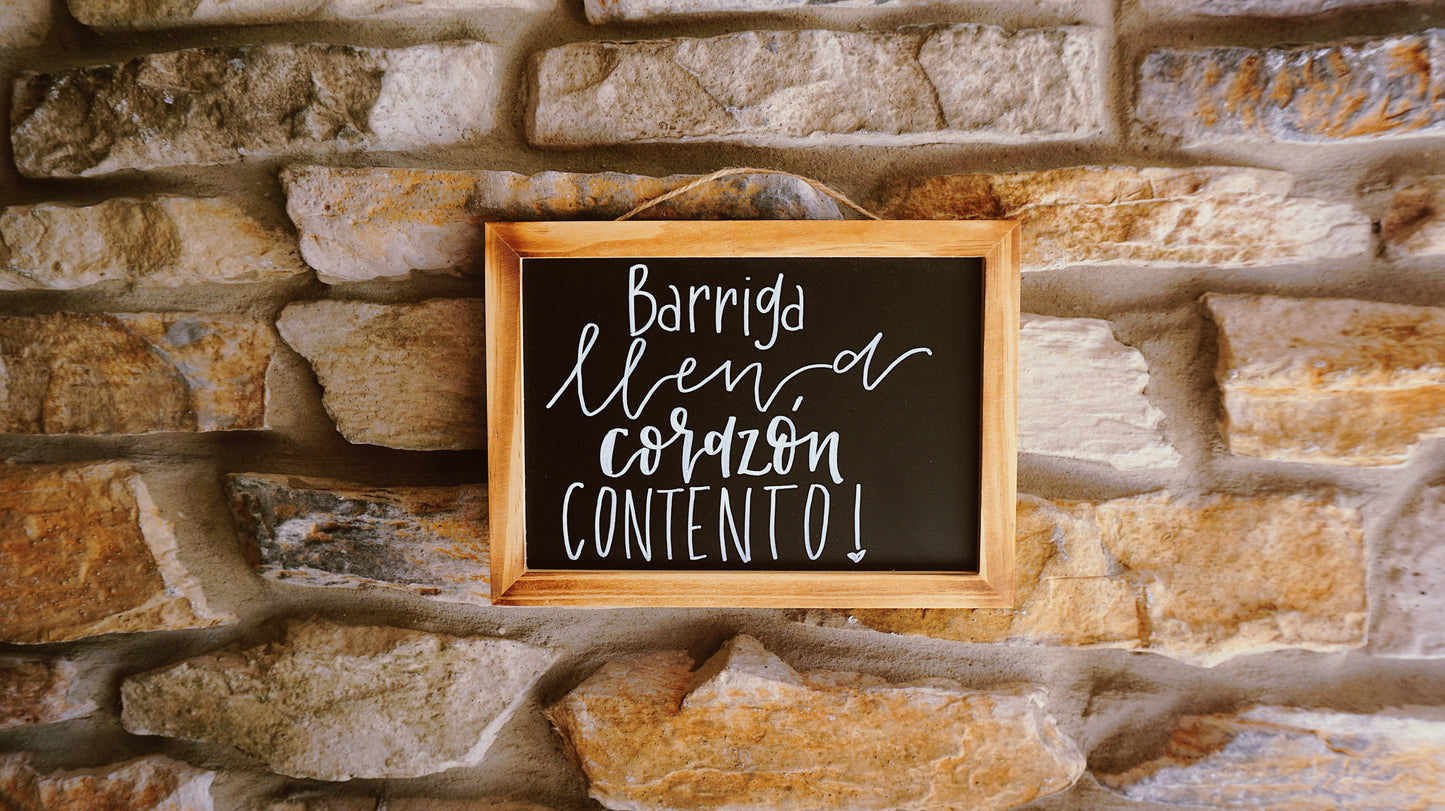 Barriga
llena
corazón
CONTENTO!